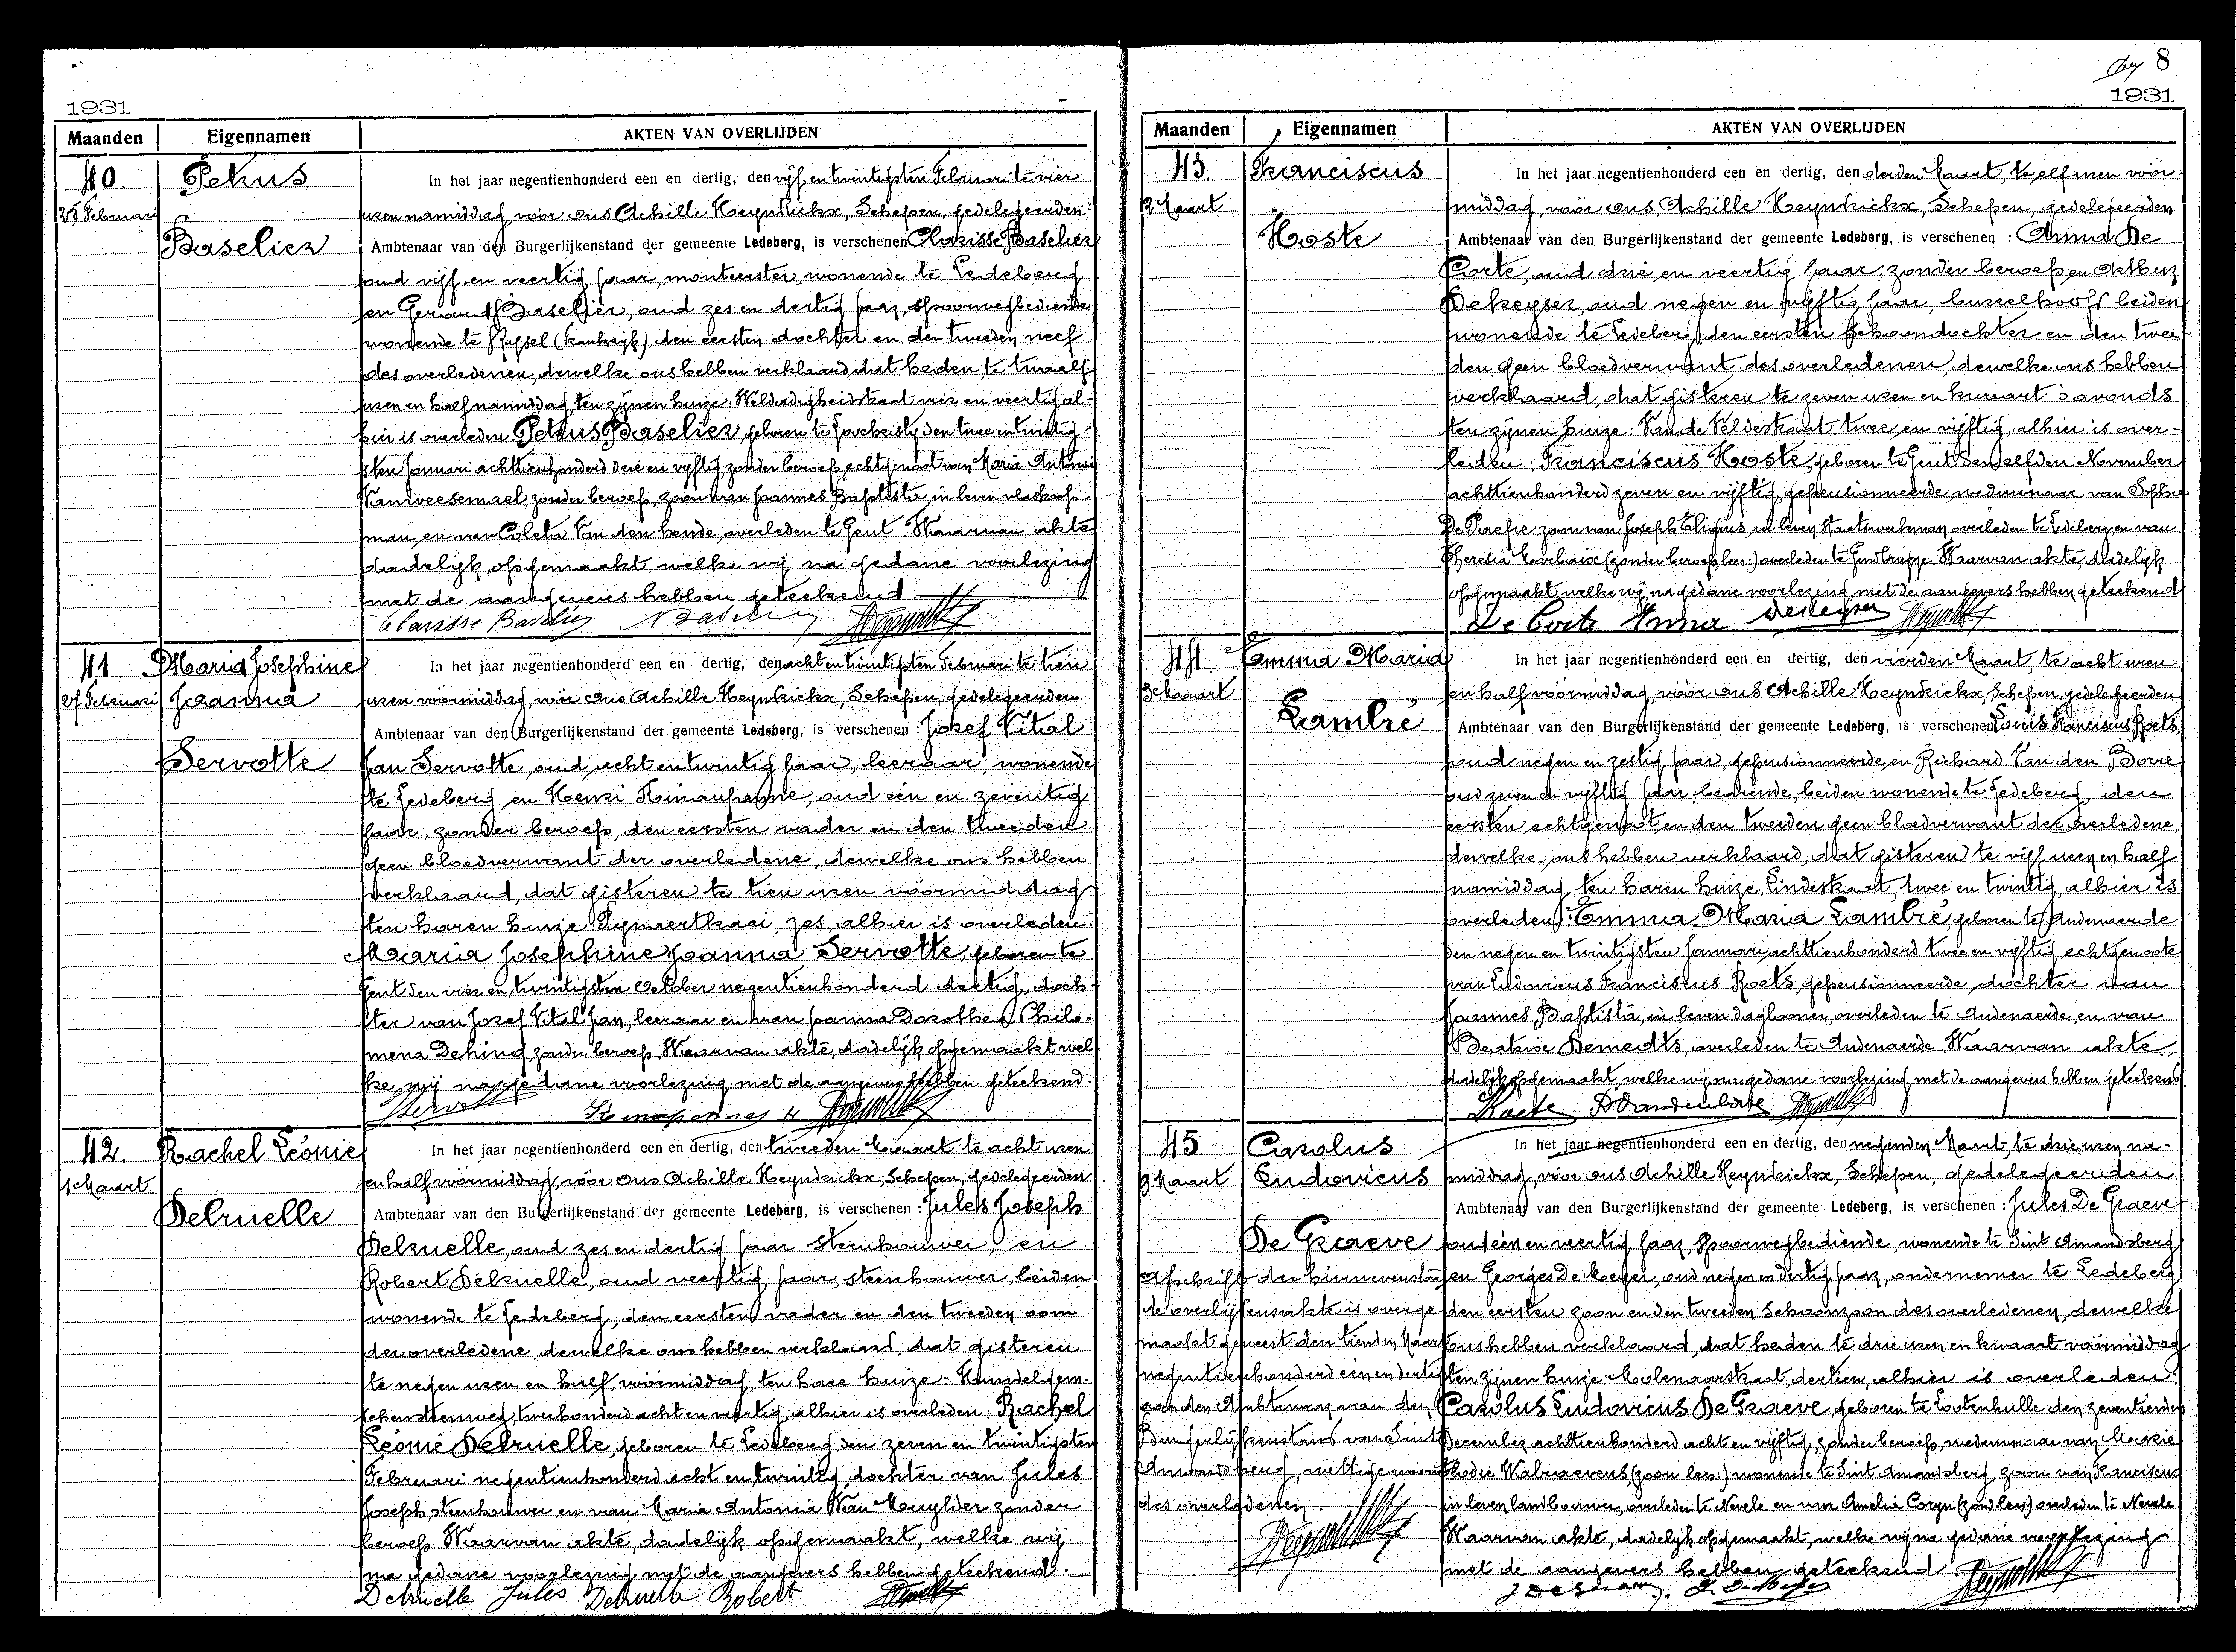 1931
Maanden Eigennamen AKTEN VAN OVERLIJDEN
40. Petrus
25 Februari
Baselier
In het jaar negentienhonderd een en dertig, den vijf en twintigsten Februari te vier
uren namiddag, vóór ons Achille Heyndrickx, Schepen, gedelegeerden
Ambtenaar van den Burgerlijkenstand der gemeente Ledeberg, is verschenen Clarisse Baselier
oud vijf en veertig jaar, wonende te Ledeberg
en Gerard Baselier, oud zes en dertig jaar, spoorwegbediende
wonende te Rijsel (Frankrijk), den eersten dochter en den tweeden neef
des overledenen, dewelke ons hebben verklaard, dat heden, te twaalf
uren en half namiddag, ten zijnen huize: Weldadigheidstraat vier en veertig al-
hier is overleden: Petrus Baselier, geboren te den twee en twintig-
sten Januari achttienhonderd drie en vijftig, zonder beroep, echtgenoot van Maria Antonia
zonder beroep, zoon van Joannes Baptiste, in leven vlaskoop-
man, en van Coleta Van den hende, overleden te Gent. Waarvan akte
dadelijk opgemaakt, welke wij na gedane voorlezing
met de aangevers hebben geteekend.
Clarisse Baselier
41 Maria Josephine
27 Februari Joanna
Servotte
In het jaar negentienhonderd een en dertig, den acht en twintigsten Februari te tien
uren voormiddag, vóór ons Achille Heyndrickx, Schepen, gedelegeerden
Ambtenaar van den Burgerlijkenstand der gemeente Ledeberg, is verschenen : Jozef Vital
Jan Servotte, oud acht en twintig jaar, leeraar, wonende
te Ledeberg en Henri oud één en zeventig
jaar, zonder beroep, den eersten vader en den tweeden
geen bloedverwant der overledene, dewelke ons hebben
verklaard, dat gisteren te tien uren voormiddag
ten haren huize zes, alhier is overleden:
Maria Josephine Joanna Servotte, geboren te
Gent den vier en twintigsten October negentienhonderd dertig, doch-
ter van Jozef Vital Jan, leeraar en van Joanna Dorothea Philo-
mena zonder beroep. Waarvan akte, dadelijk opgemaakt wel-
ke wij na gedane voorlezing met de aangevers hebben geteekend.
Servotte
42. Rachel Léonie
1 Maart
Delruelle
In het jaar negentienhonderd een en dertig, den tweeden Maart te acht uren
en half voormiddag, vóór ons Achille Heyndrickx, Schepen, gedelegeerden
Ambtenaar van den Burgerlijkenstand der gemeente Ledeberg, is verschenen : Jules Joseph
Delruelle, oud zes en dertig jaar steenhouwer, en
Robert Delruelle, oud veertig jaar, steenhouwer, beiden
wonende te Ledeberg, den eersten vader en den tweeden oom
der overledene, dewelke ons hebben verklaard, dat gisteren
te negen uren en half voormiddag, ten hare huize: Hundelgem-
schensteenweg, tweehonderd acht en veertig, alhier is overleden: Rachel
Léonie Delruelle, geboren te Ledeberg, den zeven en twintigsten
Februari negentienhonderd acht en twintig, dochter van Jules
Joseph, steenhouwer en van Maria Antonia Van zonder
beroep. Waarvan akte, dadelijk opgemaakt, welke wij
na gedane voorlezing met de aangevers hebben geteekend.
Delruelle Jules Delruelle Robert
8
1931
Maanden Eigennamen AKTEN VAN OVERLIJDEN
43. Franciscus
2 Maart
Hoste
In het jaar negentienhonderd een en dertig, den derden Maart, te elf uren voor-
middag, vóór ons Achille Heyndrickx, Schepen, gedelegeerden
Ambtenaar van den Burgerlijkenstand der gemeente Ledeberg, is verschenen : Anna De
Corte, oud drie en veertig jaar, zonder beroep en Arthur
Dekeyser, oud negen en vijftig jaar, bureelhoofd beiden
wonende te Ledeberg, den eersten schoondochter en den twee-
den geen bloedverwant des overledenen, dewelke ons hebben
verklaard, dat gisteren te zeven uren en kwart 's avonds
ten zijnen huize: Van de Veldestraat twee en vijftig, alhier is over-
leden: Franciscus Hoste, geboren te Gent den elfden November
achttienhonderd zeven en vijftig, gepensionneerde, weduwnaar van Sophie
De Paepe, zoon van Joseph Eligius, in leven Staatswerkman, overleden te Ledeberg en van
Theresia (zonder beroep, lees:) overleden te Gendbrugge. Waarvan akte, dadelijk
opgemaakt welke wij na gedane voorlezing met de aangevers hebben geteekend
De Corte Anna Dekeyser
44 Emma Maria
3 Maart
Lambré
In het jaar negentienhonderd een en dertig, den vierden Maart, te acht uren
en half voormiddag, vóór ons Achille Heyndrickx, Schepen, gedelegeerden
Ambtenaar van den Burgerlijkenstand der gemeente Ledeberg, is verschenen Louis Franciscus Roets,
oud negen en zestig jaar, gepensionneerde, en Richard Van den Borre
oud zeven en vijftig jaar, bediende, beiden wonende te Ledeberg, den
eersten echtgenoot en den tweeden geen bloedverwant der overledene,
dewelke ons hebben verklaard, dat gisteren te vijf uren en half
namiddag, ten haren huize, Lindestraat, twee en twintig, alhier is
overleden: Emma Maria Lambré, geboren te Audenaerde
den negen en twintigsten Januari achttienhonderd twee en vijftig, echtgenoote
van Ludovicus Franciscus Roets, gepensionneerde, dochter van
Joannes Baptista, in leven daglooner, overleden te Audenaerde, en van
Beatrice Demedts, overleden te Audenaerde. Waarvan akte,
dadelijk opgemaakt, welke wij na gedane voorlezing met de aangevers hebben geteekend
45 Carolus
9 Maart Ludovicus
De Graeve
Afschrift der hiernevenstaan
de overlijdensakte is overge
maakt geweest den tienden Maart
negentienhonderd één en dertig
aan den Ambtenaar van den
Burgerlijkenstand van Sint
Amandsberg, wettige woonst
des overledenen.
In het jaar negentienhonderd een en dertig, den negenden Maart, te drie uren na-
middag, vóór ons Achille Heyndrickx, Schepen, gedelegeerden
Ambtenaar van den Burgerlijkenstand der gemeente Ledeberg, is verschenen : Jules De Graeve
oud één en veertig jaar, spoorwegbediende, wonende te Sint Amandsberg
en Georges De Meyer, oud negen en dertig jaar, ondernemer te Ledeberg
den eersten zoon en den tweeden schoonzoon des overledenen, dewelke
ons hebben verklaard, dat heden te drie uren en kwart voormiddag
ten zijnen huize Molenaarstraat, dertien, alhier is overleden:
Carolus Ludovicus De Graeve, geboren te Lootenhulle den zeventienden
December achttienhonderd acht en vijftig, zonder beroep, weduwnaar van Marie
Elodie (zoon lees:) wonende te Sint Amandsberg, zoon van Franciscus
in leven landbouwer, overleden te Nevele en van Amelia Coryn (zond lees) overleden te Nevele
Waarvan akte, dadelijk opgemaakt, welke wij na gedane voorlezing
met de aangevers hebben geteekend